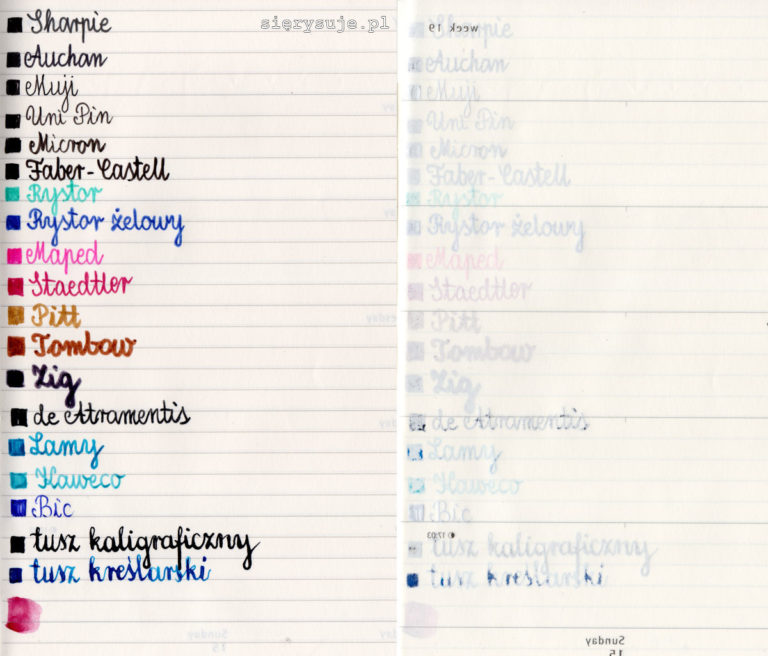 sierysuje.pl
Sharpie
Auchan
Muji
Uni Pin
Micron
Faber-Castell
Rystor
Rystor żelowy
Maped
Staedtler
Pitt
Tombow
Zig
de Atramentis
Lamy
Kaweco
Bic
tusz kaligraficzny
tusz kreślarski
Sunday
15
week 19
Sharpie
Auchan
Muji
Uni Pin
Micron
Faber-Castell
Rystor
Rystor żelowy
Maped
Staedtler
Pitt
Tombow
Zig
de Atramentis
Lamy
Kaweco
Bic
17:03
tusz kaligraficzny
tusz kreślarski
Sunday
15